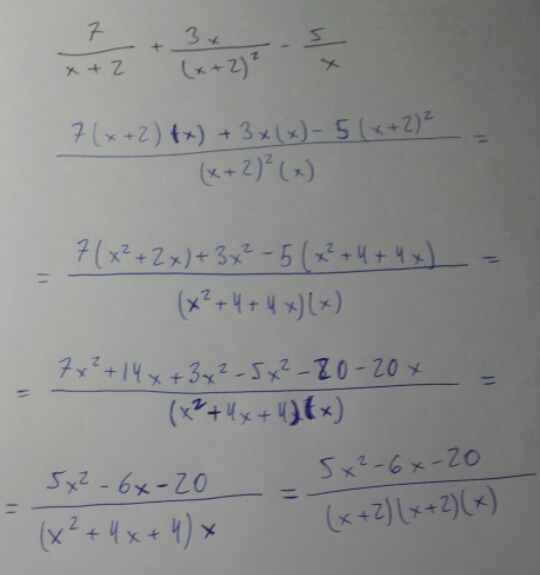 7/(x+2) + 3x/(x+2)² - 5/x
(7(x+2)(x) + 3x(x) - 5(x+2)²)/((x+2)²(x)) =
= (7(x²+2x) + 3x² - 5(x²+4+4x))/((x²+4+4x)(x)) =
= (7x²+14x+3x²-5x²-20-20x)/((x²+4x+4)(x)) =
= (5x²-6x-20)/((x²+4x+4)x) = (5x²-6x-20)/((x+2)(x+2)(x))